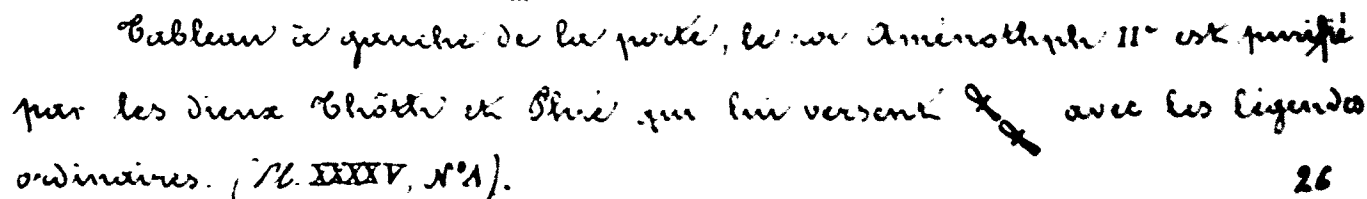 Tableau à gauche de la porte, le roi Aménothph IIe est purifié
par les dieux Thôth et Phré qui lui versent avec les légendes
ordinaires. (Pl. XXXXV, N°1). 26